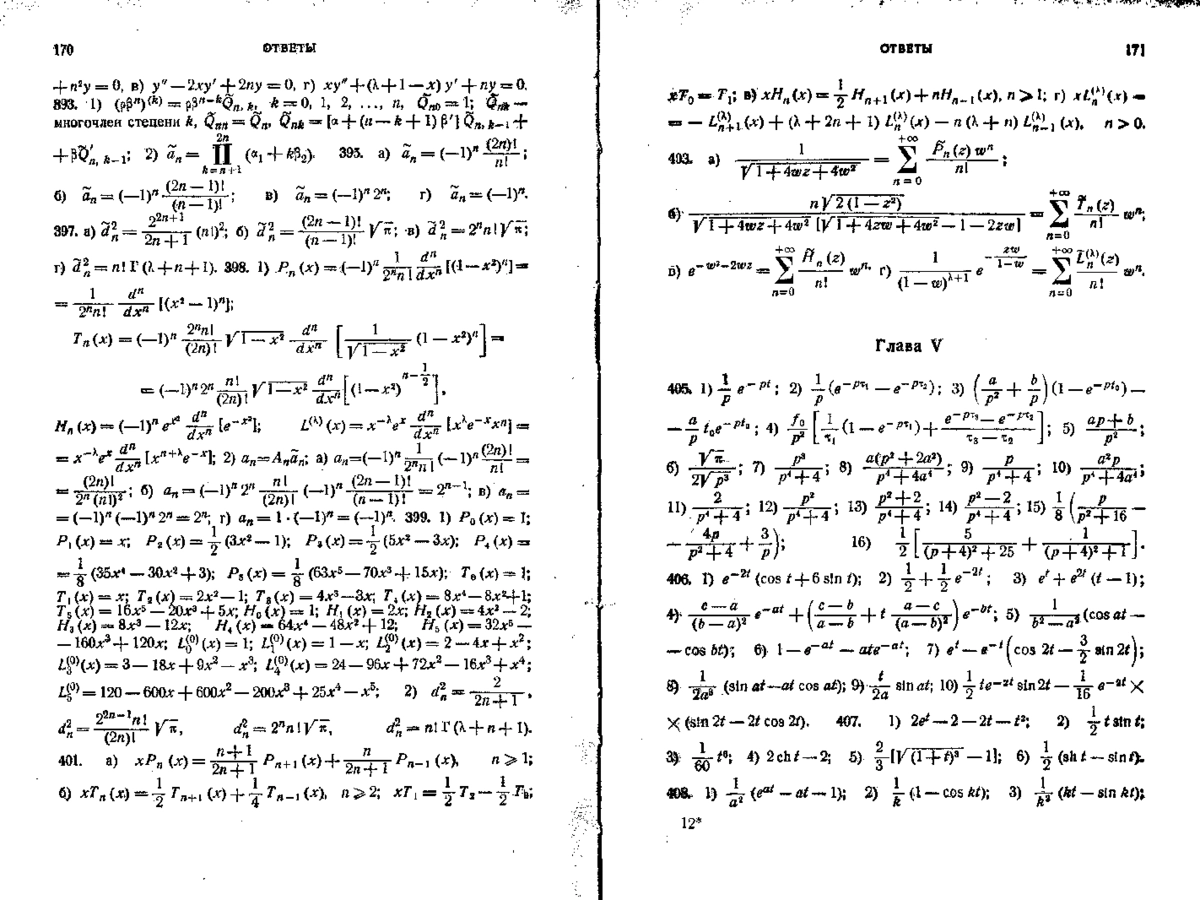 170 ОТВЕТЫ
+n²y = 0, в) y″ − 2xy′ + 2ny = 0, г) xy″ + (λ + 1 − x) y′ + ny = 0.
893. 1) (ρβⁿ)⁽ᵏ⁾ = ρβⁿ⁻ᵏQ̃ₙ,ₖ, k = 0, 1, 2, …, n, Q̃ₙ₀ = 1; Q̃ₙₖ —
многочлен степени k, Q̃ₙₙ = Q̃ₙ, Q̃ₙₖ = [α + (n − k + 1) β′] Q̃ₙ,ₖ₋₁ +
+ βQ̃′ₙ,ₖ₋₁; 2) ãₙ = ∏_{k=n+1}^{2n} (α₁ + kβ₂). 395. а) ãₙ = (−1)ⁿ (2n)!/n!;
б) ãₙ = (−1)ⁿ (2n − 1)!/(n − 1)!; в) ãₙ = (−1)ⁿ 2ⁿ; г) ãₙ = (−1)ⁿ.
397. а) d̃²ₙ = 2²ⁿ⁺¹/(2n + 1) (n!)²; б) d̃²ₙ = (2n − 1)!/(n − 1)! √π; в) d̃²ₙ = 2ⁿn!√π;
г) d̃²ₙ = n! Γ (λ + n + 1). 398. 1) Pₙ (x) = (−1)ⁿ 1/(2ⁿn!) dⁿ/dxⁿ [(1 − x²)ⁿ] =
= 1/(2ⁿn!) dⁿ/dxⁿ [(x² − 1)ⁿ];
Tₙ (x) = (−1)ⁿ 2ⁿn!/(2n)! √(1 − x²) dⁿ/dxⁿ [1/√(1 − x²) (1 − x²)ⁿ] =
= (−1)ⁿ 2ⁿ n!/(2n)! √(1 − x²) dⁿ/dxⁿ [(1 − x²)^{n − 1/2}],
Hₙ (x) = (−1)ⁿ e^{x²} dⁿ/dxⁿ [e^{−x²}]; L⁽λ⁾ (x) = x^{−λ}eˣ dⁿ/dxⁿ [x^λ e^{−x}xⁿ] =
= x^{−λ}eˣ dⁿ/dxⁿ [x^{n+λ}e^{−x}]; 2) aₙ = Aₙãₙ; а) aₙ = (−1)ⁿ 1/(2ⁿn!) (−1)ⁿ (2n)!/n! =
= (2n)!/(2ⁿ (n!)²); б) aₙ = (−1)ⁿ 2ⁿ n!/(2n)! (−1)ⁿ (2n − 1)!/(n − 1)! = 2ⁿ⁻¹; в) aₙ =
= (−1)ⁿ (−1)ⁿ 2ⁿ = 2ⁿ; г) aₙ = 1 · (−1)ⁿ = (−1)ⁿ. 399. 1) P₀ (x) = 1;
P₁ (x) = x; P₂ (x) = 1/2 (3x² − 1); P₃ (x) = 1/2 (5x² − 3x); P₄ (x) =
= 1/8 (35x⁴ − 30x² + 3); P₅ (x) = 1/8 (63x⁵ − 70x³ + 15x); T₀ (x) = 1;
T₁ (x) = x; T₂ (x) = 2x² − 1; T₃ (x) = 4x³ − 3x; T₄ (x) = 8x⁴ − 8x² + 1;
T₅ (x) = 16x⁵ − 20x³ + 5x; H₀ (x) = 1; H₁ (x) = 2x; H₂ (x) = 4x² − 2;
H₃ (x) = 8x³ − 12x; H₄ (x) = 64x⁴ − 48x² + 12; H₅ (x) = 32x⁵ −
− 160x³ + 120x; L₀⁽⁰⁾ (x) = 1; L₁⁽⁰⁾ (x) = 1 − x; L₂⁽⁰⁾ (x) = 2 − 4x + x²;
L₃⁽⁰⁾ (x) = 3 − 18x + 9x² − x³; L₄⁽⁰⁾ (x) = 24 − 96x + 72x² − 16x³ + x⁴;
L₅⁽⁰⁾ = 120 − 600x + 600x² − 200x³ + 25x⁴ − x⁵; 2) d²ₙ = 2/(2n + 1),
d²ₙ = 2²ⁿ⁻¹n!/(2n)! √π, d²ₙ = 2ⁿn!√π, d²ₙ = n! Γ (λ + n + 1).
401. а) xPₙ (x) = (n + 1)/(2n + 1) Pₙ₊₁ (x) + n/(2n + 1) Pₙ₋₁ (x), n ⩾ 1;
б) xTₙ (x) = 1/2 Tₙ₊₁ (x) + 1/4 Tₙ₋₁ (x), n ⩾ 2; xT₁ = 1/2 T₂ − 1/2 T₀;
ОТВЕТЫ 171
xT₀ = T₁; в) xHₙ (x) = 1/2 Hₙ₊₁ (x) + nHₙ₋₁ (x), n ⩾ 1; г) xLₙ⁽λ⁾ (x) =
= − Lₙ₊₁⁽λ⁾ (x) + (λ + 2n + 1) Lₙ⁽λ⁾ (x) − n (λ + n) Lₙ₋₁⁽λ⁾ (x), n > 0.
403. а) 1/√(1 + 4wz + 4w²) = ∑_{n=0}^{+∞} P̃ₙ (z) wⁿ/n!;
б) n√(2 (1 − z²))/(√(1 + 4wz + 4w²) [√(1 + 4zw + 4w²) − 1 − 2zw]) = ∑_{n=0}^{+∞} T̃ₙ (z)/n! wⁿ;
в) e^{−w²−2wz} = ∑_{n=0}^{+∞} H̃ₙ (z)/n! wⁿ. г) 1/(1 − w)^{λ+1} e^{−zw/(1−w)} = ∑_{n=0}^{+∞} L̃ₙ⁽λ⁾(z)/n! wⁿ.
Глава V
405. 1) 1/p e^{−pt}; 2) 1/p (e^{−pτ₁} − e^{−pτ₂}); 3) (a/p² + b/p) (1 − e^{−pt₀}) −
− a/p t₀e^{−pt₀}; 4) f₀/p² [1/τ₁ (1 − e^{−pτ₁}) + (e^{−pτ₃} − e^{−pτ₂})/(τ₃ − τ₂)]; 5) (ap + b)/p²;
6) √π/(2√p³); 7) p³/(p⁴ + 4); 8) a(p² + 2a²)/(p⁴ + 4a⁴); 9) p/(p⁴ + 4); 10) a²p/(p⁴ + 4a⁴);
11) 2/(p⁴ + 4); 12) p²/(p⁴ + 4); 13) (p² + 2)/(p⁴ + 4); 14) (p² − 2)/(p⁴ + 4); 15) 1/8 (p/(p² + 16) −
− 4p/(p² + 4) + 3/p); 16) 1/2 [5/((p + 4)² + 25) + 1/((p + 4)² + 1)].
406. 1) e^{−2t} (cos t + 6 sin t); 2) 1/2 + 1/2 e^{−2t}; 3) eᵗ + e^{2t} (t − 1);
4) (c − a)/(b − a)² e^{−at} + ((c − b)/(a − b) + t (a − c)/(a − b)²) e^{−bt}; 5) 1/(b² − a²) (cos at −
− cos bt); 6) 1 − e^{−at} − ate^{−at}; 7) eᵗ − e^{−t} (cos 2t − 3/2 sin 2t);
8) 1/(2a³) (sin at − at cos at); 9) t/(2a) sin at; 10) 1/2 te^{−2t} sin 2t − 1/16 e^{−2t} ×
× (sin 2t − 2t cos 2t). 407. 1) 2eᵗ − 2 − 2t − t²; 2) 1/2 t sin t;
3) 1/60 t⁶; 4) 2 ch t − 2; 5) 2/3 [√((1 + t)³) − 1]; 6) 1/2 (sh t − sin t).
408. 1) 1/a² (e^{at} − at − 1); 2) 1/k (1 − cos kt); 3) 1/k³ (kt − sin kt);
12*